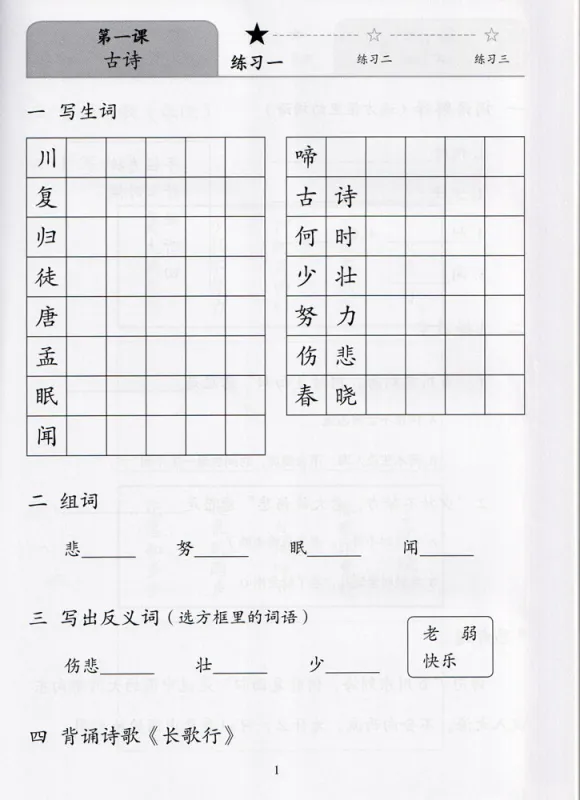 第一课
古诗
练习一
练习二
练习三
一 写生词
川
复
归
徒
唐
孟
眠
闻
啼
古诗
何时
少壮
努力
伤悲
春晓
二 组词
悲______ 努______ 眠______ 闻______
三 写出反义词（选方框里的词语）
老 弱
快乐
伤悲______ 壮______ 少______
四 背诵诗歌《长歌行》
1